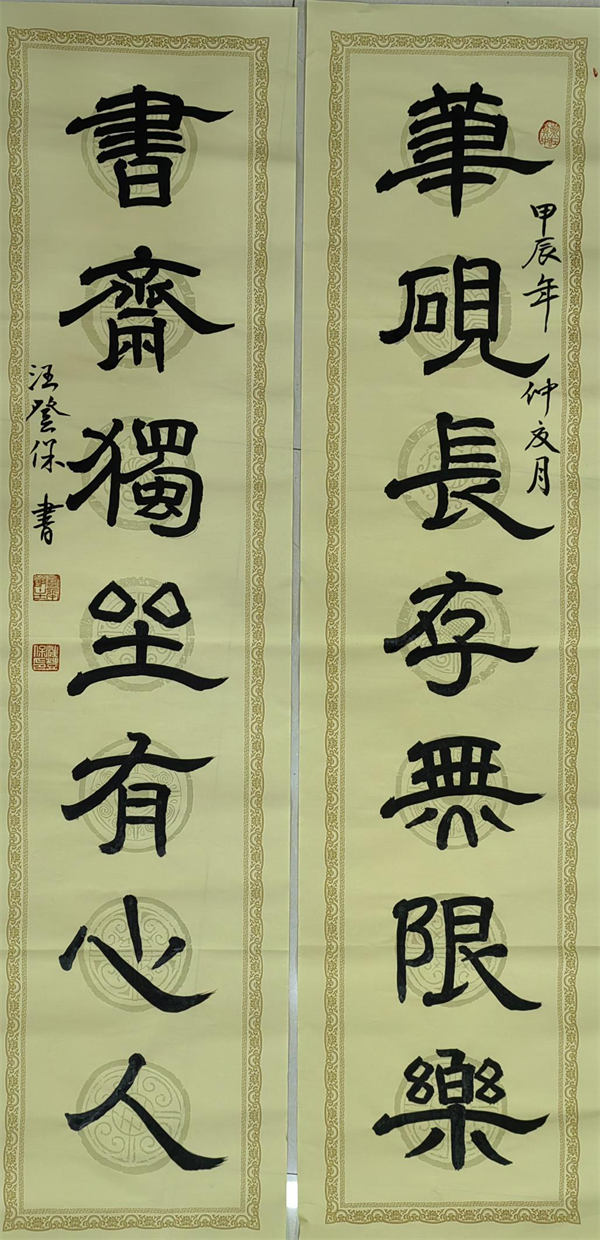 筆硯長存無限樂
甲辰年 仲夏月
書齋獨坐有心人
汪登保 書